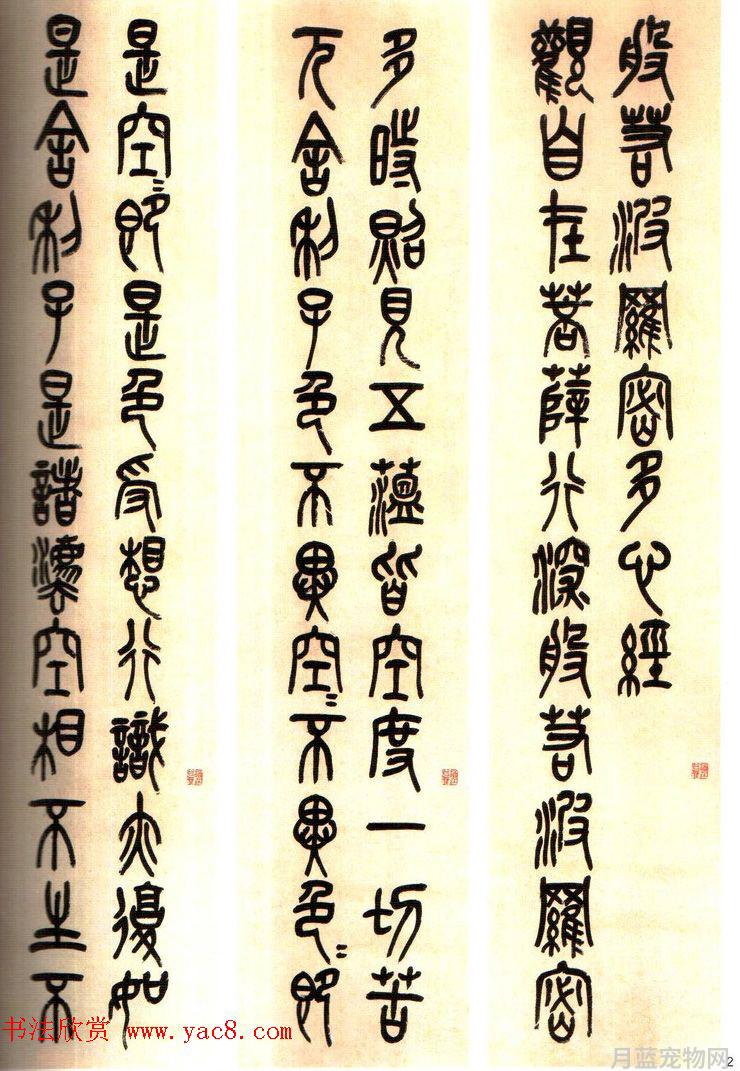 般若波羅密多心經
觀自在菩薩行深般若波羅密
多時照見五薀皆空度一切苦
厄舍利子色不異空〻不異色〻即
是空〻即是色受想行識亦復如
是舍利子是諸灋空相不生不
书法欣赏 www.yac8.com
月蓝宠物网
2